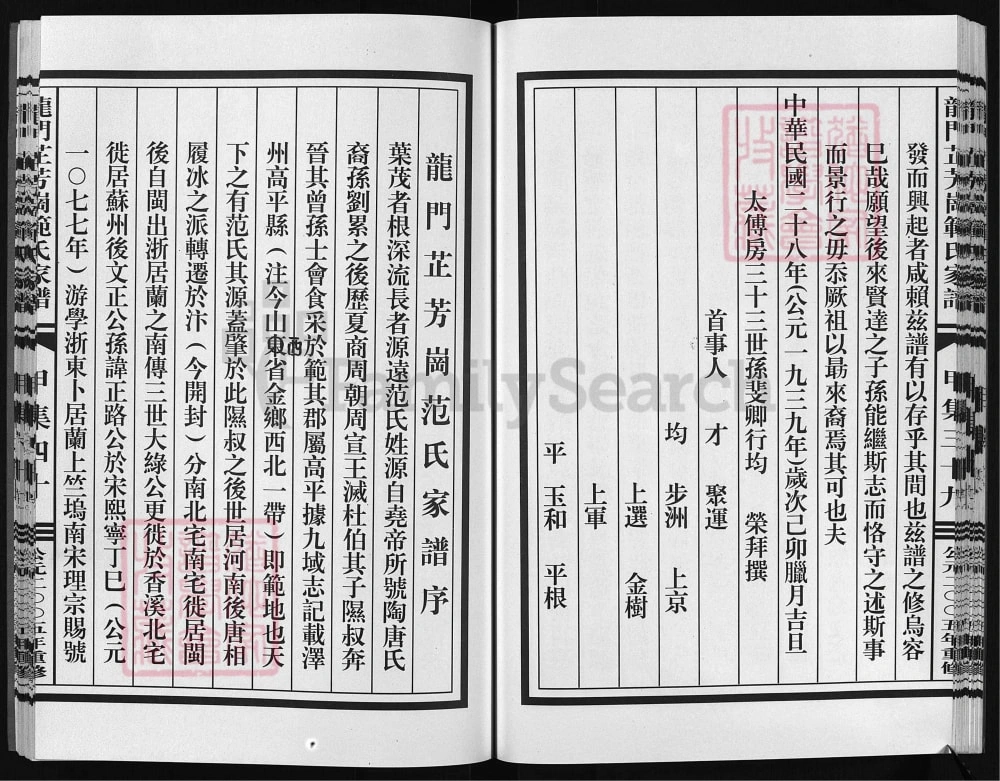 發而興起者咸賴兹譜有以存乎其間也兹譜之修烏容
巳哉願望後來賢達之子孫能繼斯志而恪守之述斯事
而景行之毋忝厥祖以勗來裔焉其可也夫
中華民國二十八年(公元一九三九年)歲次己卯臘月吉旦
太傅房三十三世孫斐卿行均 榮拜撰
首事人 才 聚運
均 步洲 上京
上選 金樹
上軍
平 玉和 平根
龍門芷芳崗范氏家譜序
葉茂者根深流長者源遠范氏姓源自堯帝所號陶唐氏
裔孫劉累之後歷夏商周朝周宣王滅杜伯其子隰叔奔
晉其曾孫士會食采於範其郡屬高平據九域志記載澤
州高平縣(注今山東西省金鄉西北一帶)即範地也天
下之有范氏其源蓋肇於此隰叔之後世居河南後唐相
履冰之派轉遷於汴(今開封)分南北宅南宅徙居閩
後自閩出浙居蘭之南傳三世大綠公更徙於香溪北宅
徙居蘇州後文正公孫諱正路公於宋熙寧丁巳(公元
一〇七七年)游學浙東卜居蘭上竺塢南宋理宗賜號
龍門芷芳崗範氏家譜
甲集四十
公元二〇〇五年重修
FamilySearch